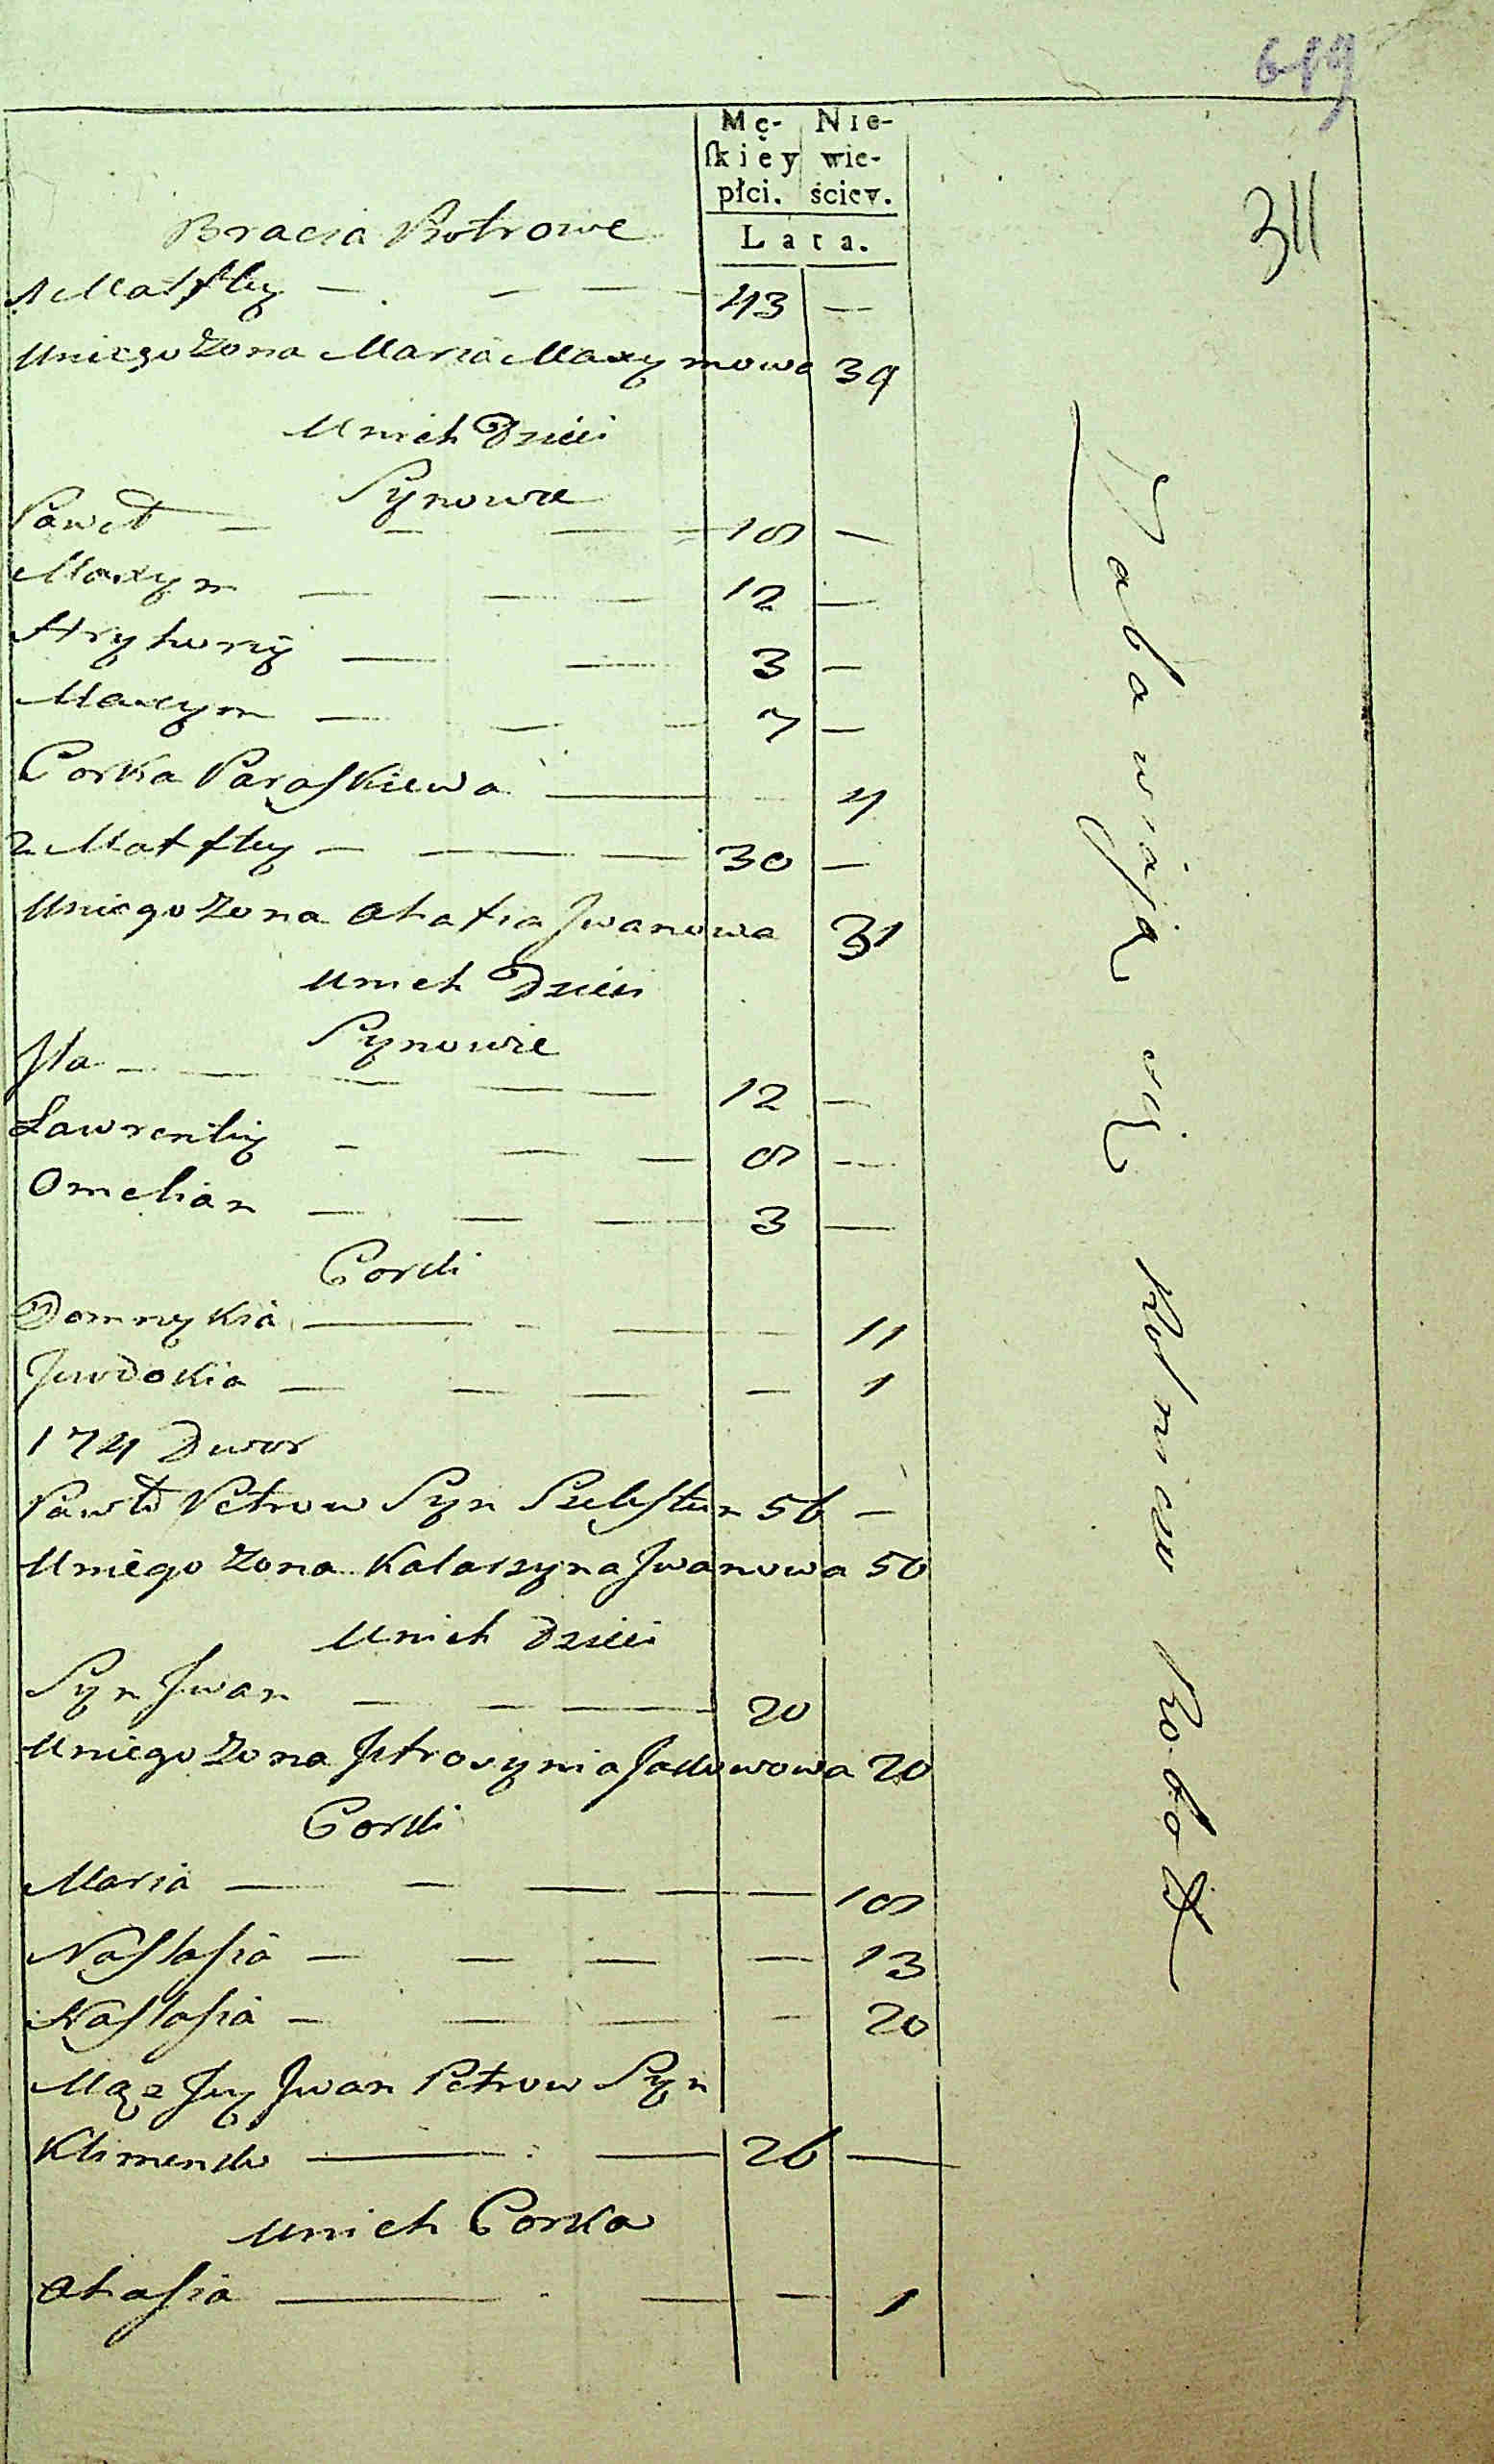 619
311
Mę- Nie-
ſkiey wie-
płci. ściey.
Lata.
Bracia Piotrowe
1 Matfiey — — — 43 —
Uniego Zona Maria Maxymowa 39
Unich Dzieci
Synowie
Paweł — — — 18 —
Maxym — — — 12 —
Hryhorij — — 3 —
Maxym — — — 7 —
Corka Paraskiewa — 4
2 Matfiey — — — 30 —
Uniego Zona Ahafia Jwanowa 31
Unich Dzieci
Synowie
Jla — — — — — 12 —
Ławrentiy — — — 8 —
Omelian — — — 3 —
Corki
Domnykia — - — — 11
Jewdokia — — — — 1
174 Dwor
Pawło Petrow Syn Szelestun 56 —
Uniego Zona Katarzyna Jwanowa 50
Unich Dzieci
Syn Jwan — — — 20
Uniego Zona Jefrosynia 20
Corki
Maria — — — — — 18
Nastasia — — — — 13
Nastasia — — — — 20
Mąż Jey Jwan Petrow Syn
Klimenko — — 26 —
Unich Corka
Ahasia — - — — 1
Zabawiają się Rolniczo Robotą